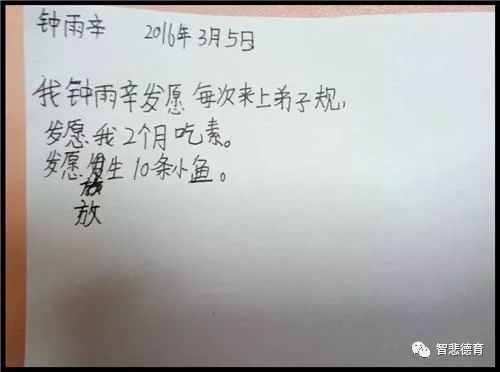 钟雨辛 2016年3月5日
我钟雨辛发愿每次来上弟子规,
发愿我2个月吃素。
发愿生10条小鱼。
放
智悲德育